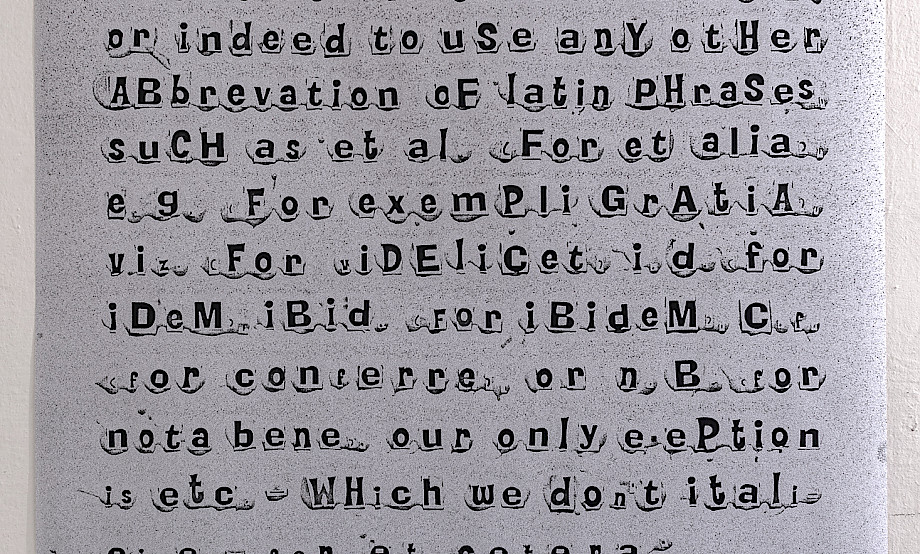 or indeed to uSe anY otHer
ABbrevation oF latin PHraSes
suCH as et al. (For et alia),
e.g. (For exemPli GrAtiA),
viz. (For viDEliCet), i.d. (for
iDeM), iBid. (For iBideM), C.f.
(for conferre), or n.B. (for
nota bene). our only e.ePtion
is etc. - WHich we don't itali-